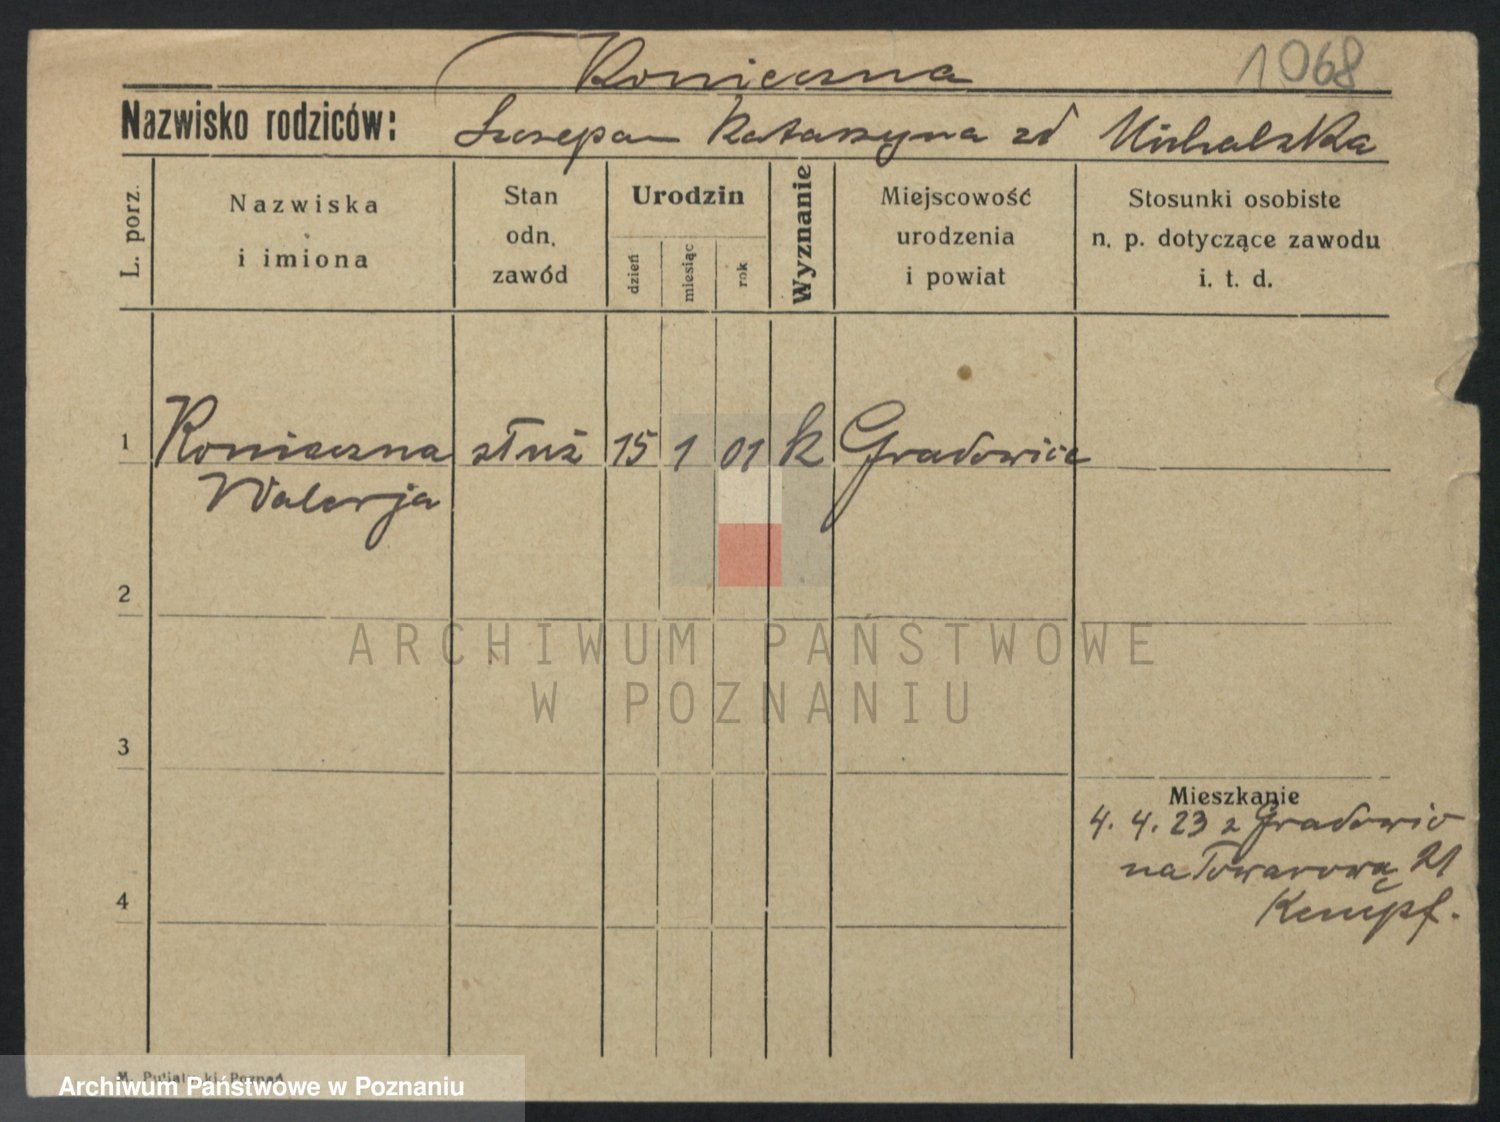 Konieczna
1068
Nazwisko rodziców: Szczepan Katarzyna zd Michalska
L. porz.
Nazwiska
i imiona
Stan
odn.
zawód
Urodzin
dzień
miesiąc
rok
Wyznanie
Miejscowość
urodzenia
i powiat
Stosunki osobiste
n. p. dotyczące zawodu
i. t. d.
1 Konieczna służ 15 1 01 k Gradowice
Walerja
2
ARCHIWUM PAŃSTWOWE
W POZNANIU
3
Mieszkanie
4. 4. 23 z Gradowic
na Towarową 21
4
Kempf.
Archiwum Państwowe w Poznaniu